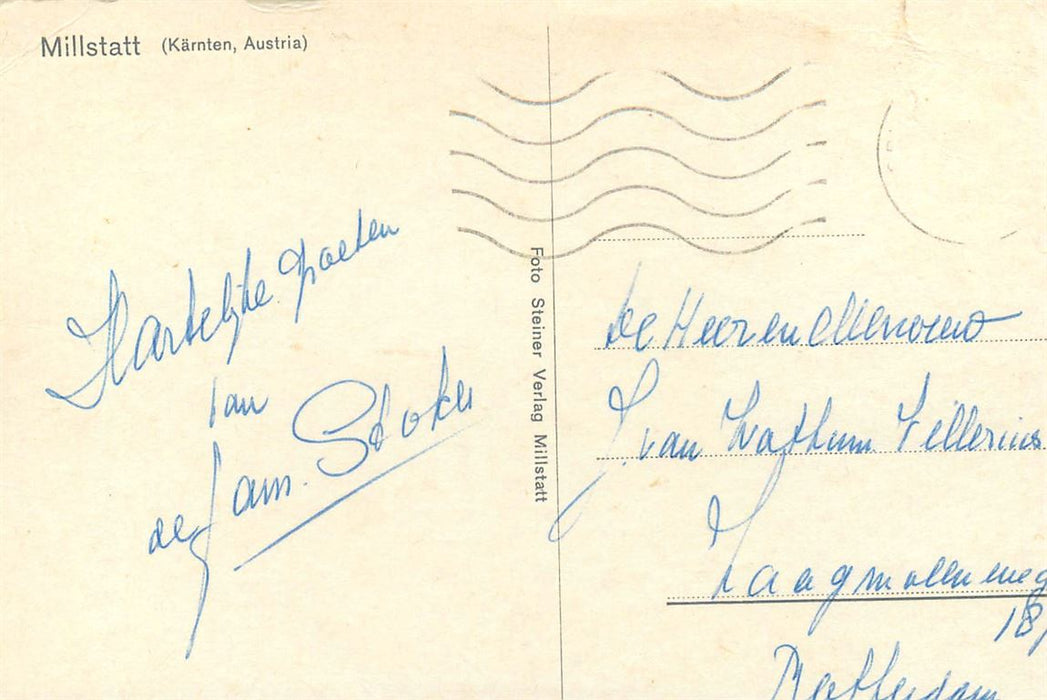 Millstatt (Kärnten, Austria)
Hartelijke groeten
van
de fam. Stoker
Foto Steiner Verlag Millstatt
De Heer en Mevrouw
J. van
Zaagmolenweg
18
Rotterdam